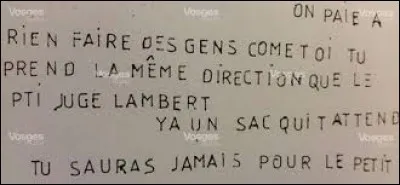 ON PAIE A
RIEN FAIRE DES GENS COME TOI TU
PREND LA MÊME DIRECTION QUE LE
PTI JUGE LAMBERT
YA UN SAC QUIT ATTEND
TU SAURAS JAMAIS POUR LE PETIT